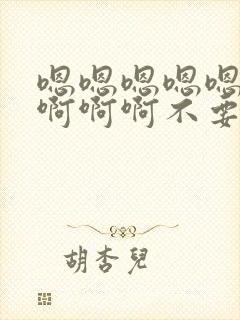 嗯嗯嗯嗯嗯
啊啊啊不要
胡杏兒